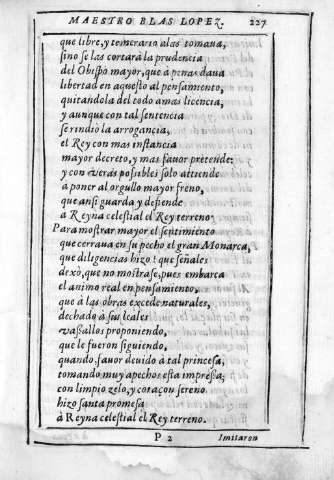 MAESTRO BLAS LOPEZ. 227
que libre, y temerario alas tomaua,
sino se las cortàra la prudencia
del Obispo mayor, que à penas daua
libertad en aquesto al pensamiento,
quitandola del todo a mas licencia,
y aunque con tal sentencia
se rindiò la arrogancia,
el Rey con mas instancia
mayor decreto, y mas fauor pretende:
y con veras possibles solo attiende
a poner al orgullo mayor freno,
que ansi guarda y defiende
a Reyna celestial el Rey terreno.
Para mostrar mayor el sentimiento
que cerraua en su pecho el gran Monarca,
que diligencias hizo! que señales
dexò, que no mostrase, pues embarca
el animo real en pensamiento,
que à las obras excede naturales,
dechado à sus leales
vassallos proponiendo,
que le fueron siguiendo,
quando fauor deuido à tal princesa,
tomando muy apechos esta impressa,
con limpio zelo, y coraçon sereno
hizo santa promesa
à Reyna celestial el Rey terreno.
P 2 Imitaron